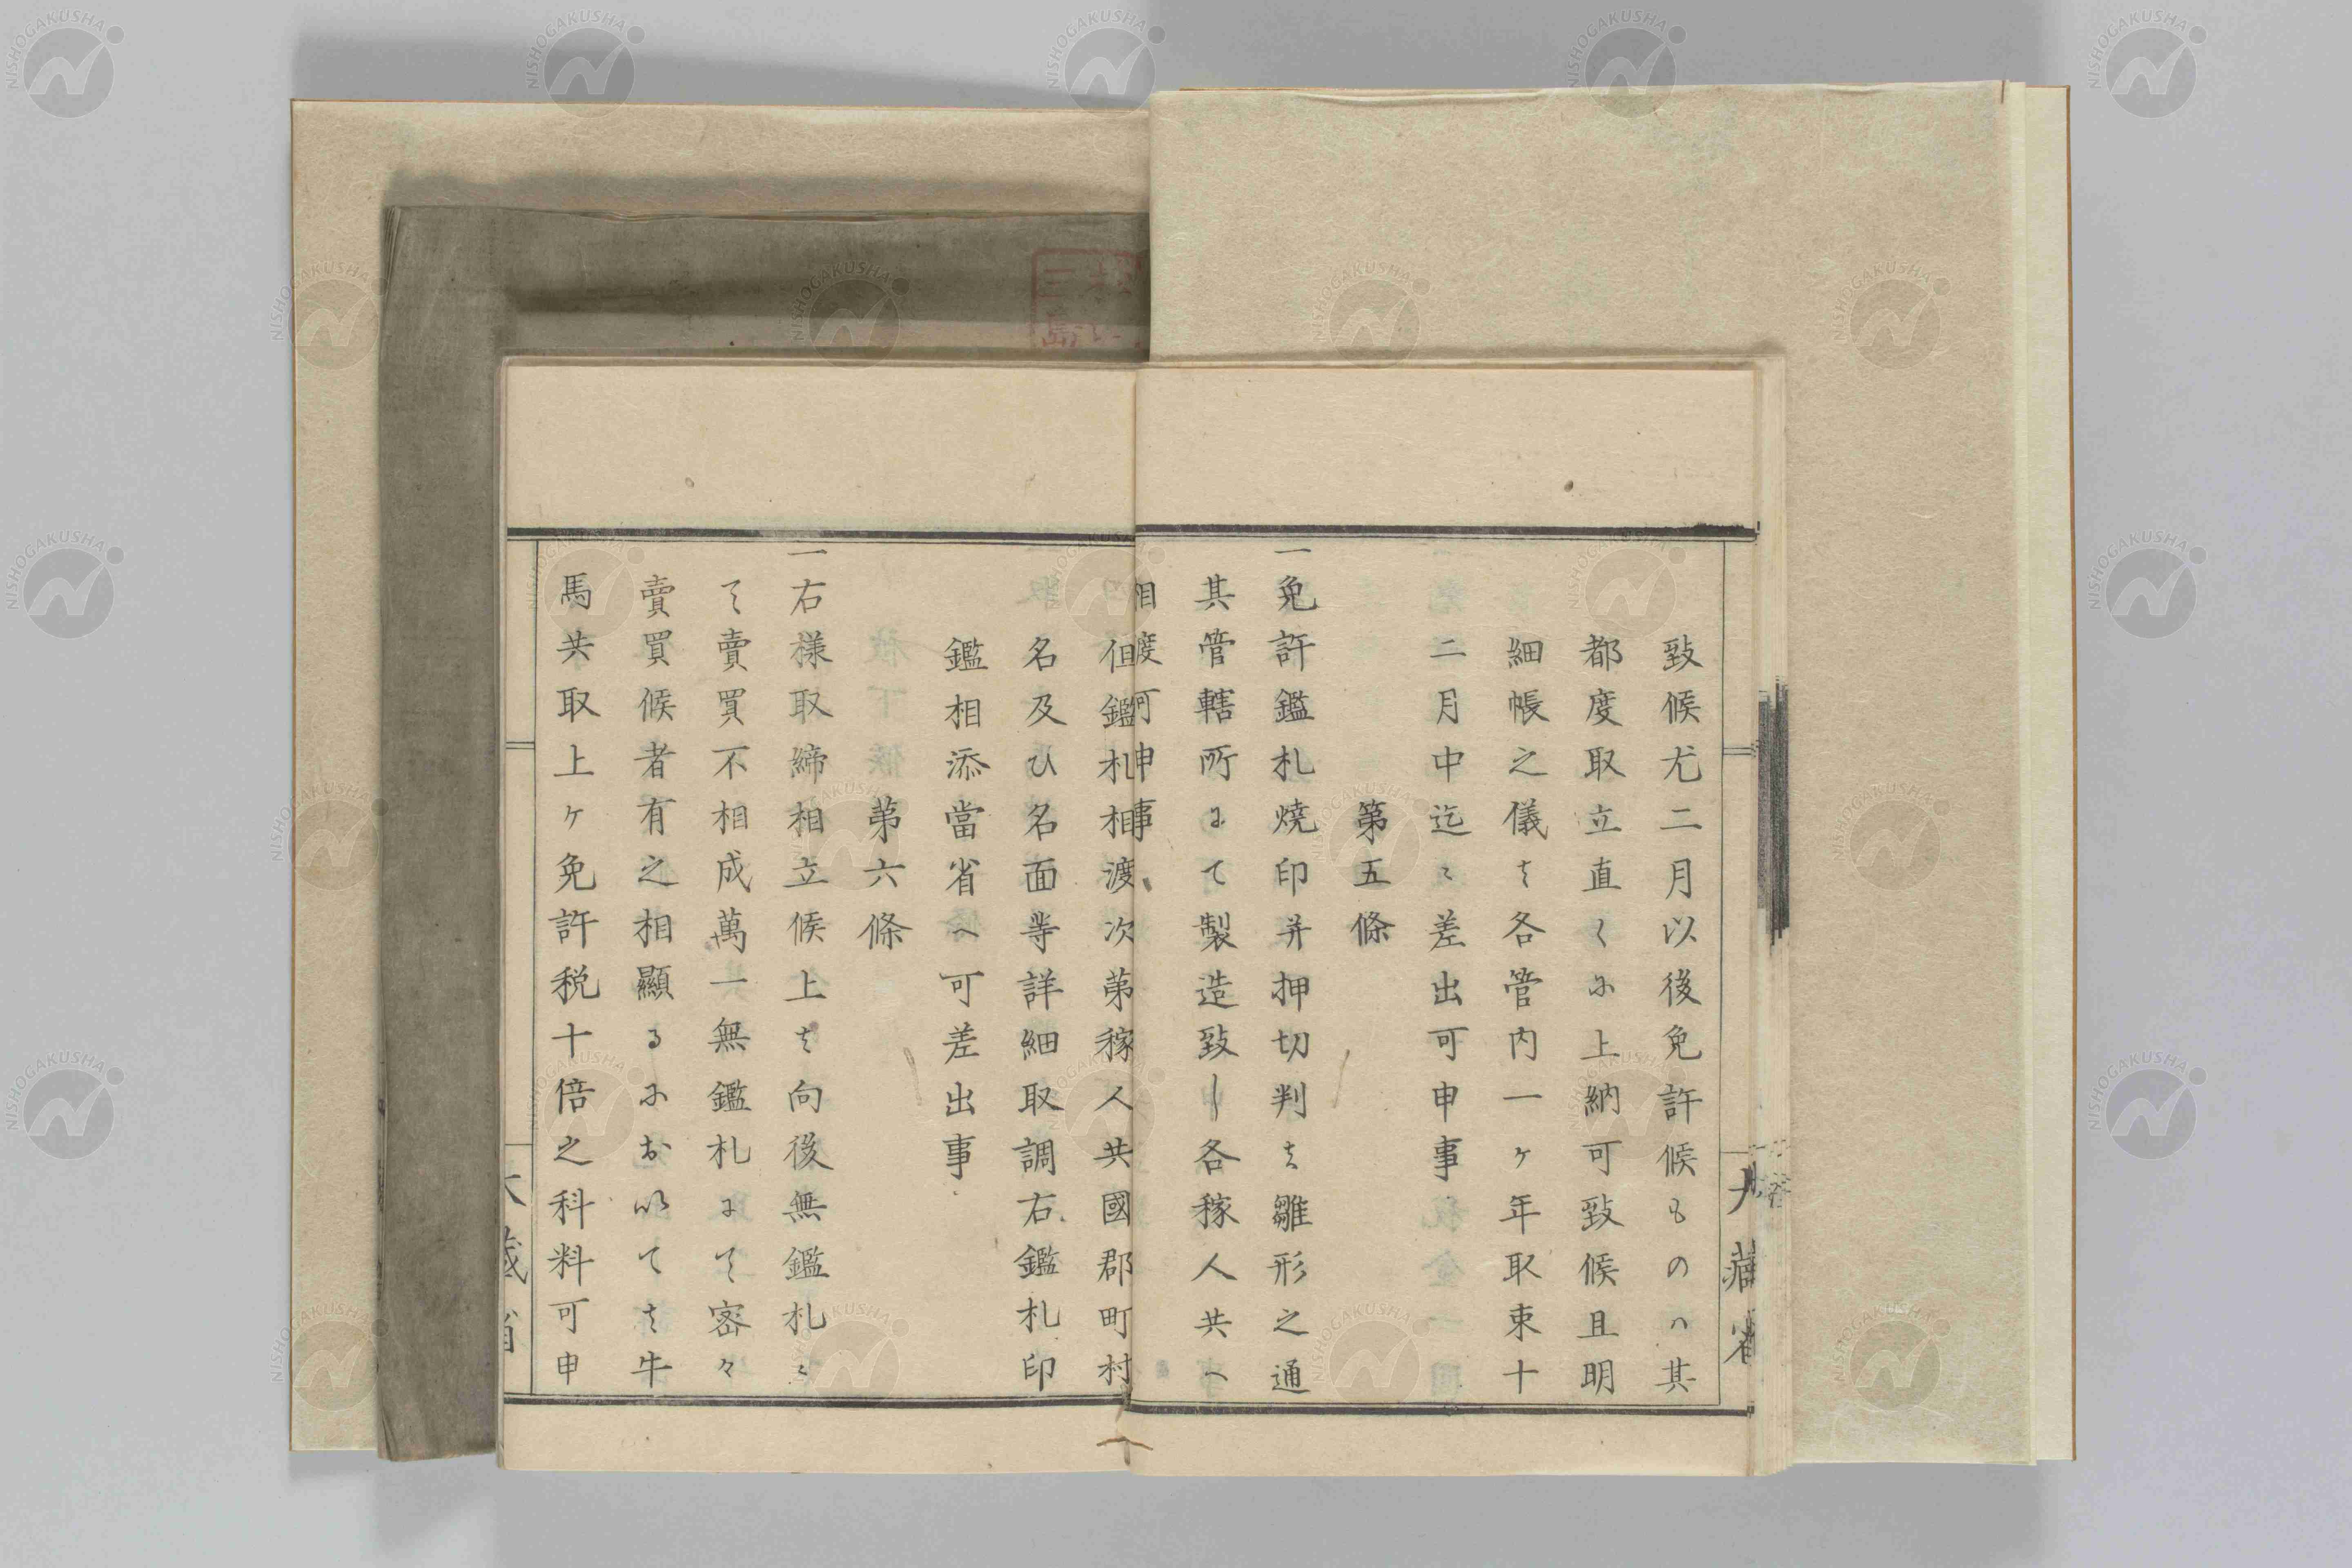 致候尤二月以後免許候ものハ其
都度取立直くに上納可致候且明
細帳之儀は各管内一ヶ年取束十
二月中迄ニ差出可申事
第五條
一免許鑑札燒印并押切判は雛形之通
其管轄所にて製造致し各稼人共へ
相渡可申事
但鑑札相渡次第稼人共國郡町村
名及ひ名面等詳細取調右鑑札印
鑑相添當省へ可差出事
第六條
一右様取締相立候上は向後無鑑札ニ
て賣買不相成萬一無鑑札にて密々
賣買候者有之相顯るにおいては牛
馬共取上ヶ免許税十倍之科料可申
大藏省
NISHOGAKUSHA